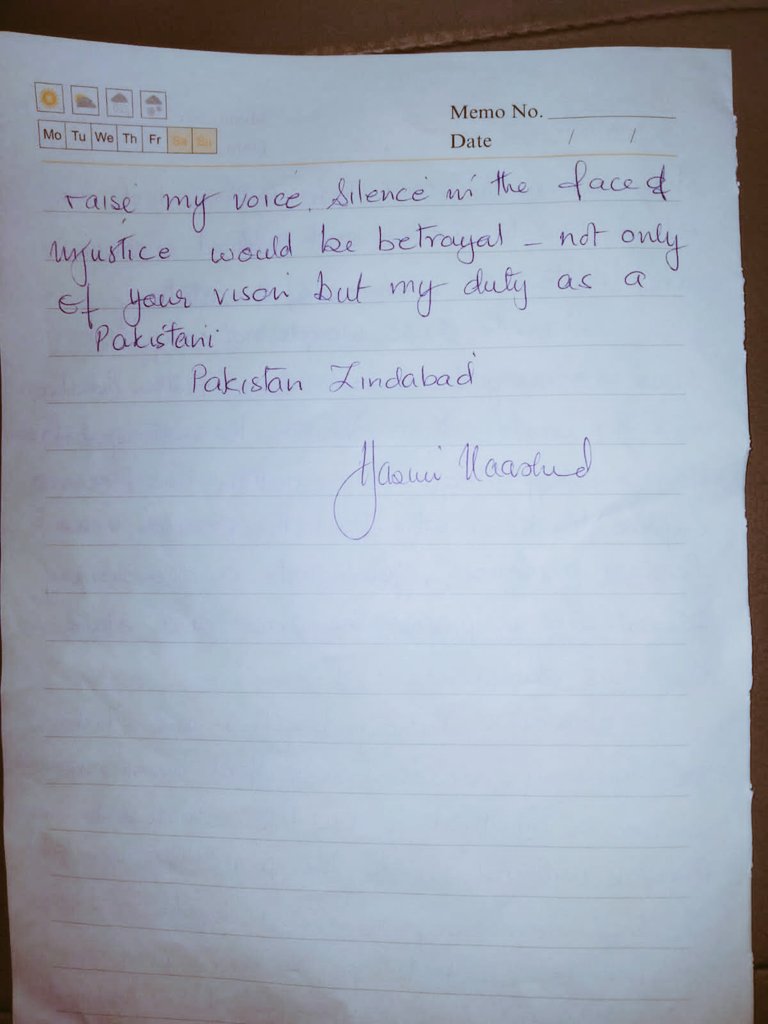 Memo No.
Mo Tu We Th Fr Sa Su
Date / /
raise my voice. Silence in the face of
injustice would be betrayal - not only
of your vison but my duty as a
Pakistani
Pakistan Zindabad